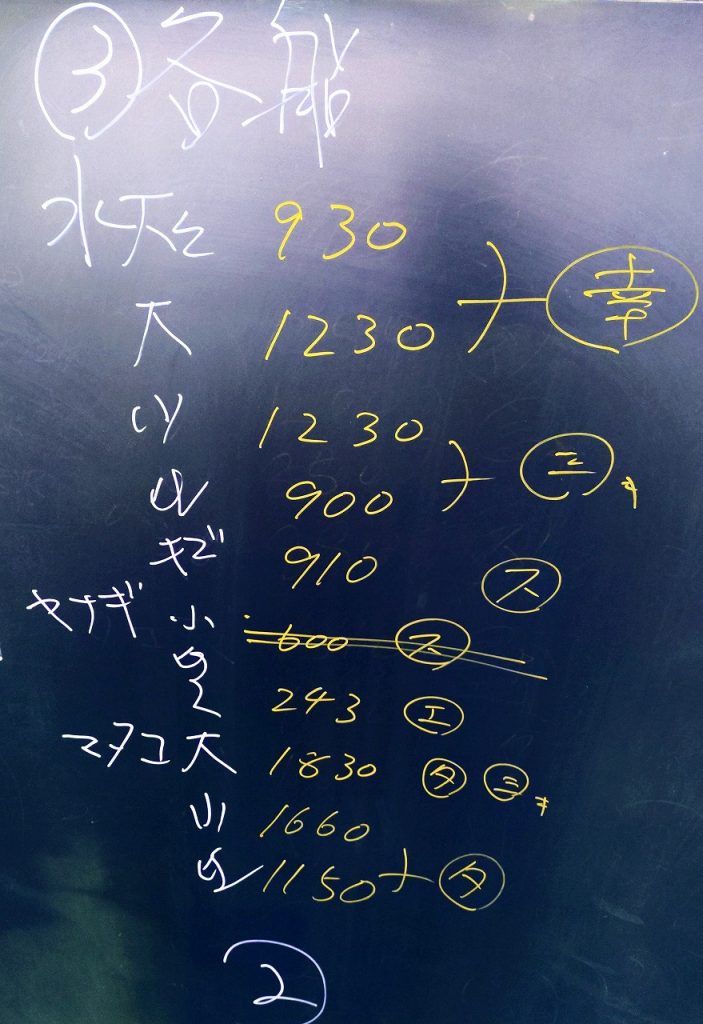 ③各船
水天 930
大 1230 幸
小 1230
900 三キ
910 ス
ヤナギ 小 600 ス
243 エ
マダコ 大 1830 タ 三キ
小 1660
1150 タ
2